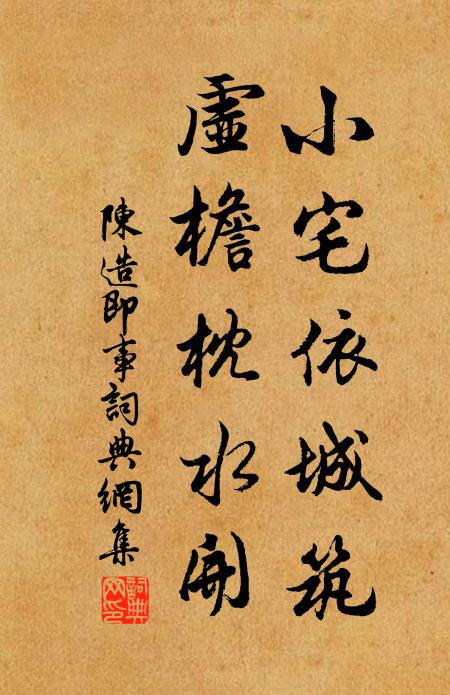 小宅依城筑
虛檐枕水開
陳造即事詞典網集
詞典
网印